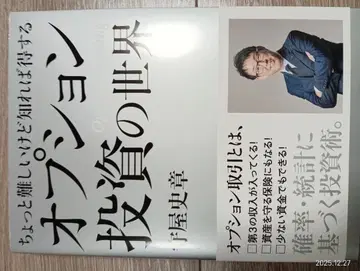 ちょっと難しいけど知れば得する
オプション
投資の世界
守屋史章
オプション取引とは、
□第3の収入が入ってくる!
□資産を守る保険にもなる!
□少ない資金でもできる!
確率・統計に
基づく投資術。
2025.12.27